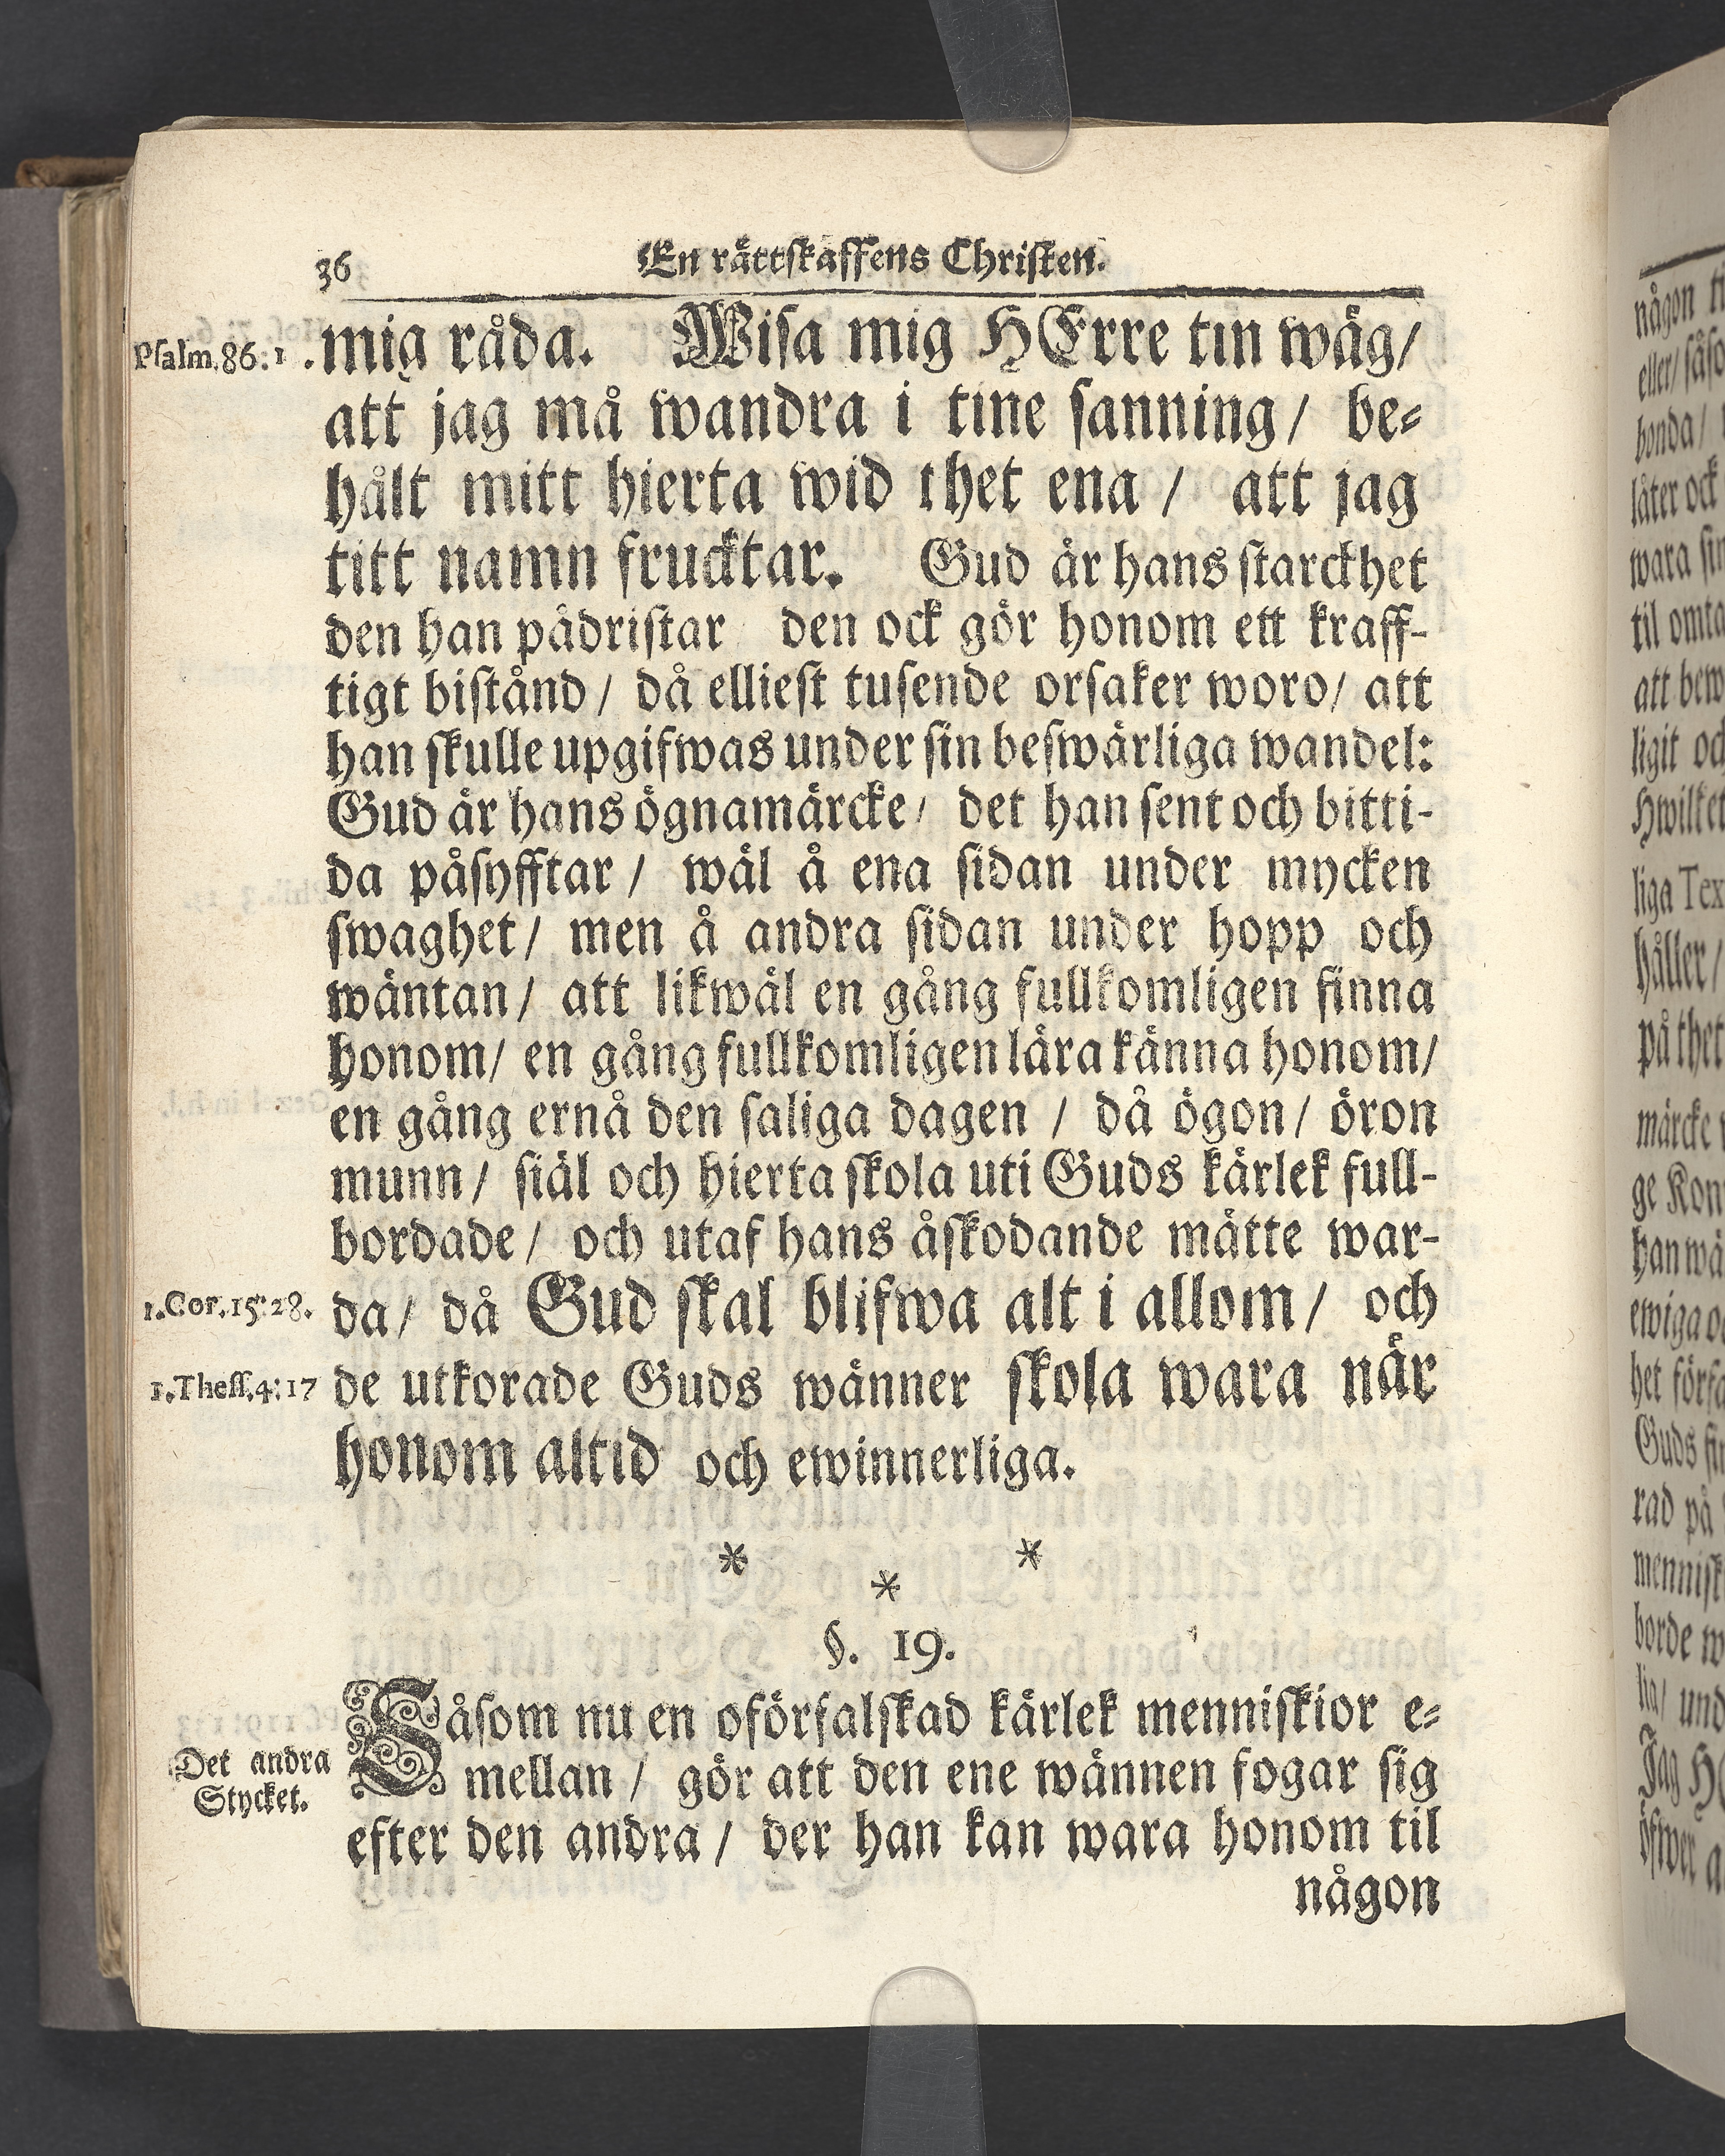 36 En rättskaffens Christen.
Psalm. 86:1 . mig råda. Wisa mig HErre tin wäg/
att jag må wandra i tine sanning/ be-
hålt mitt hierta wid thet ena / att jag
titt namn frucktar. Gud är hans starckhet
den han pådristar den ock gör honom ett kraff-
tigt bistånd/ då elliest tusende orsaker woro/ att
han skulle upgifwas under sin beswärliga wandel:
Gud är hans ögnamärcke/ det han sent och bitti-
da påsyfftar/ wäl å ena sidan under mycken
swaghet/ men å andra sidan under hopp och
wäntan/ att likwäl en gång fullkomligen finna
honom/ en gång fullkomligen lära känna honom/
en gång ernå den saliga dagen / då ögon/ öron
munn/ siäl och hierta skola uti Guds kärlek full-
bordade/ och utaf hans åskodande mätte war-
1. Cor. 15: 28. da/ då Gud skal blifwa alt i allom/ och
1. Thess. 4: 17 de utkorade Guds wänner skola wara när
honom altid och ewinnerliga.
* * *
§. 19.
Såsom nu en oförfalskad kärlek menniskior e-
Det andra mellan/ gör att den ene wännen fogar sig
Stycket. efter den andra/ der han kan wara honom til
någon
någon
eller/
bonda/
låter ock
wara
att
ligit
liga
håller/
på thet
märcke
ge
han
het
Guds
rad på
borde
Jag
öfwer